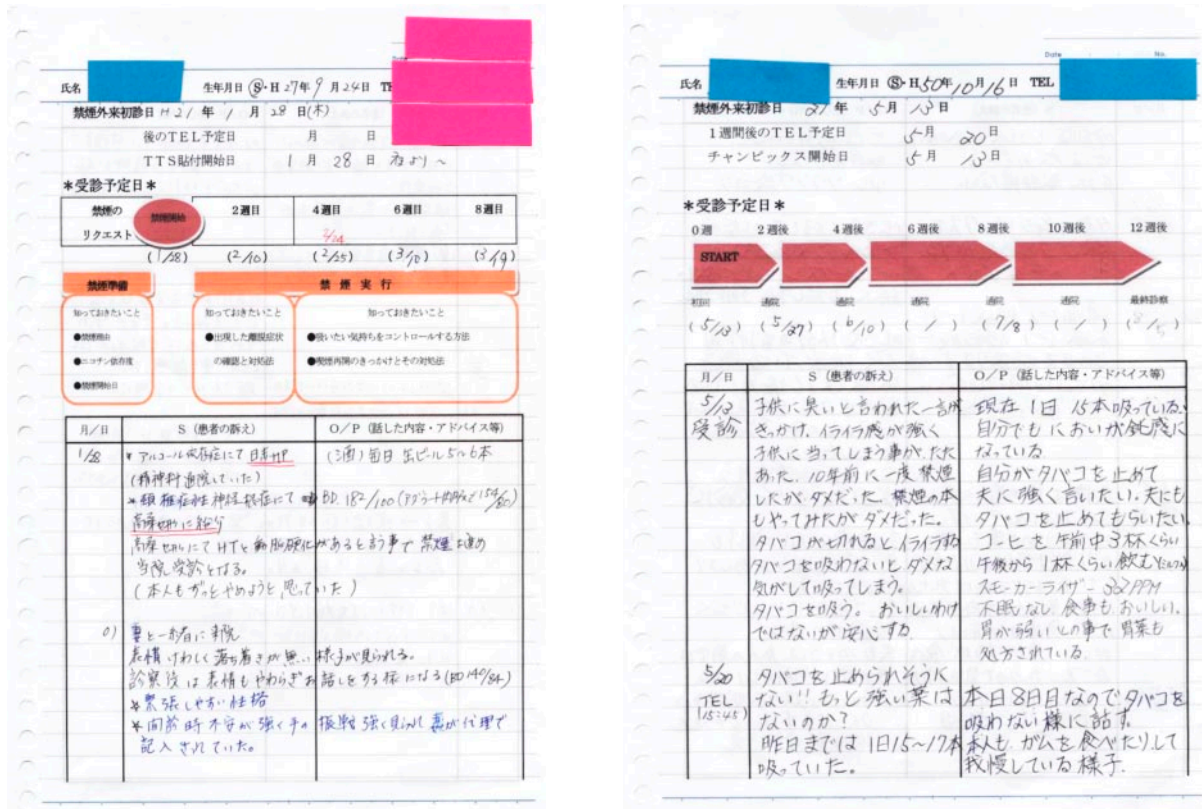 氏名
生年月日 Ⓢ・H 27年 9月 24日 TE
禁煙外来初診日 H21年 1月 28日(木)
後のTEL予定日 月 日
TTS貼付開始日 1月 28日 夜より〜
＊受診予定日＊
禁煙の
リクエスト
禁煙開始
2週目 4週目 6週目 8週目
2/24
(1/28) (2/10) (2/25) (3/10) (3/19)
禁煙準備
禁煙実行
知っておきたいこと
●禁煙理由
●ニコチン依存度
●禁煙開始日
知っておきたいこと
●出現した離脱症状
の確認と対処法
知っておきたいこと
●吸いたい気持ちをコントロールする方法
●喫煙再開のきっかけとその対処法
月/日 S (患者の訴え) O/P (話した内容・アドバイス等)
1/28 * アルコール依存症にて
(酒) 毎日 缶ビール5〜6本
(精神科通院していた)
* 頚椎症性神経根症にて
BD. 182/100
高薬せんに紹介
にてHTと動脈硬化があると言う事で禁煙を進め
当院受診となる。
(本人もずっとやめようと思っていた)
O) 妻と一緒に来院
表情けわしく落ち着きが無い様子が見られる。
診察後は表情もやわらぎお話しをする様になる (BD 140/84)
* 緊張しやすい性格
* 問診時不安が強く手の振戦強く見られ妻が代理で
記入されていた。
氏名
生年月日 Ⓢ・H 50年 10月 16日 TEL
禁煙外来初診日 21年 5月 13日
1週間後のTEL予定日 5月 20日
チャンピックス開始日 5月 13日
＊受診予定日＊
0週 2週後 4週後 6週後 8週後 10週後 12週後
START
初回 通院 通院 通院 通院 通院 最終診察
(5/13) (5/27) (6/10) ( / ) (7/8) ( / ) (8/5)
月/日 S (患者の訴え) O/P (話した内容・アドバイス等)
5/13
受診
子供に臭いと言われた一言が
きっかけ。イライラ感が強く
子供に当ってしまう事が、たた
あった。10年前に一度禁煙
したがダメだった。禁煙の本
もやってみたがダメだった。
タバコが切れるとイライラする
タバコを吸わないとダメな
気がして吸ってしまう。
タバコを吸う。おいしいわけ
ではないが安心する。
現在1日15本吸っている。
自分でもにおいが鈍感に
なっている。
自分がタバコを止めて
夫に強く言いたい。夫にも
タバコを止めてもらいたい。
コーヒを午前中3杯くらい
午後から1杯くらい飲む
スモーカーライザー 32PPM
不眠なし、食事もおいしい。
胃が弱いとの事で胃薬も
処方されている。
5/20
TEL
(15:45)
タバコを止められそうに
ない!!もっと強い薬は
ないのか?
昨日までは1日15〜17本
吸っていた。
本日8日目なのでタバコを
吸わない様に話す。
本人も、ガムを食べたりして
我慢している様子.